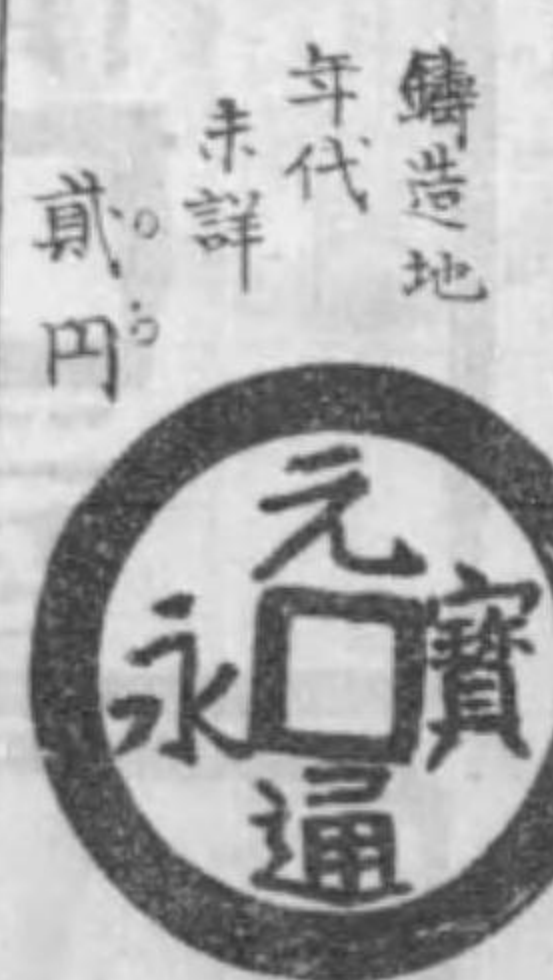 鑄造地
年代
未詳
貳円
元
寶
永
通